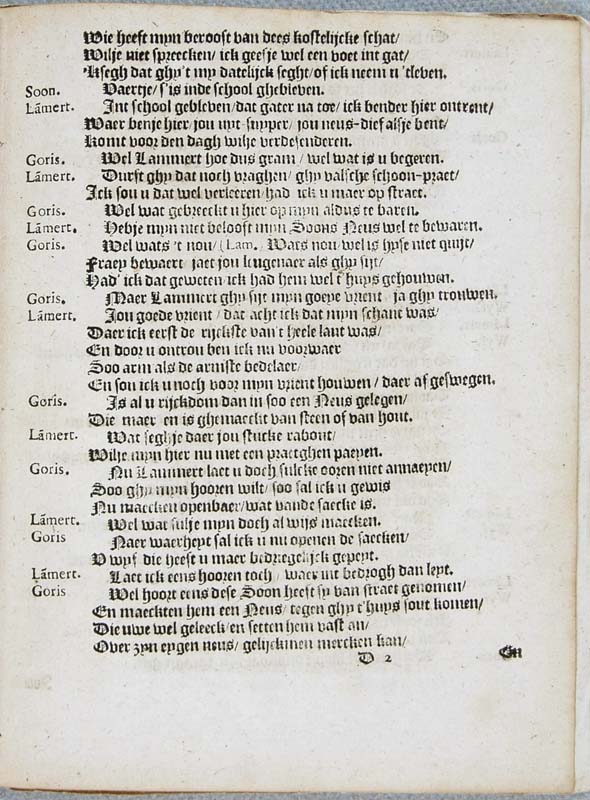 Wie heeft mijn beroost van dees kostelijcke schat/
Wilje niet spreecken/ ick geefje wel een voet int gat/
'Ksegh dat ghy't my datelijck seght/ of ick neem u 'tleven.
Soon. Vaertje/ s'is inde school ghebleven.
Lãmert. Int school gebleven/ dat gater na toe/ ick bender hier ontrent/
Waer benje hier/ jou uyt-suyper/ jou neus-dief alsje bent/
Komt voor den dagh wilje verdesenderen.
Goris. Wel Lammert hoe dus gram/ wel wat is u begeren.
Lãmert. Durft ghy dat noch vraghen/ ghy valsche schoon-praet/
Ick sou u dat wel verleeren/ had ick u maer op straet.
Goris. Wel wat gebreeckt u hier op mijn aldus te baren.
Lãmert. Hebje mijn niet belooft mijn Soons Neus wel te bewaren.
Goris. Wel wats 't nou/ (Lam. Wats nou/ wel is hyse niet quijt/
Fraey bewaert jaet jou leugenaer als ghy sijt/
Had' ick dat geweten ick had hem wel t'huys gehouwen.
Goris. Maer Lammert ghy sijt mijn goeye vrient ja ghy trouwen.
Lãmert. Jou goede vrient/ dat acht ick dat mijn schant was/
Daer ick eerst de rijckste van't heele lant was/
En door u ontrou ben ick nu voorwaer
Soo arm als de armste bedelaer/
En sou ick u noch voor mijn vrient houwen/ daer af geswegen.
Goris. Is al u rijckdom dan in soo een Neus gelegen/
Die maer en is ghemaeckt van steen of van hout.
Lãmert. Wat seghje daer jou stucke rabout/
Wilje mijn hier nu met een praetghen paeyen.
Goris. Nu Lammert laet u doch sulcke ooren niet annaeyen/
Soo ghy mijn hooren wilt/ soo sal ick u gewis
Nu maecken openbaer/ wat vande saecke is.
Lãmert. Wel wat sulje mijn doch al wijs maecken.
Goris Naer waerheyt sal ick u nu openen de saecken/
U wyf die heeft u maer bedriegelijck gepeyt.
Lãmert. Laet ick eens hooren toch/ waer uit bedrogh dan leyt.
Goris Wel hoort eens dese Soon heeft sy van straet genomen/
En maeckten hem een Neus/ tegen ghy t'huys sout komen/
Die uwe wel geleeck/ en setten hem vast an/
Over zyn eygen neus/ gelijckmen mercken kan/
D 2 En